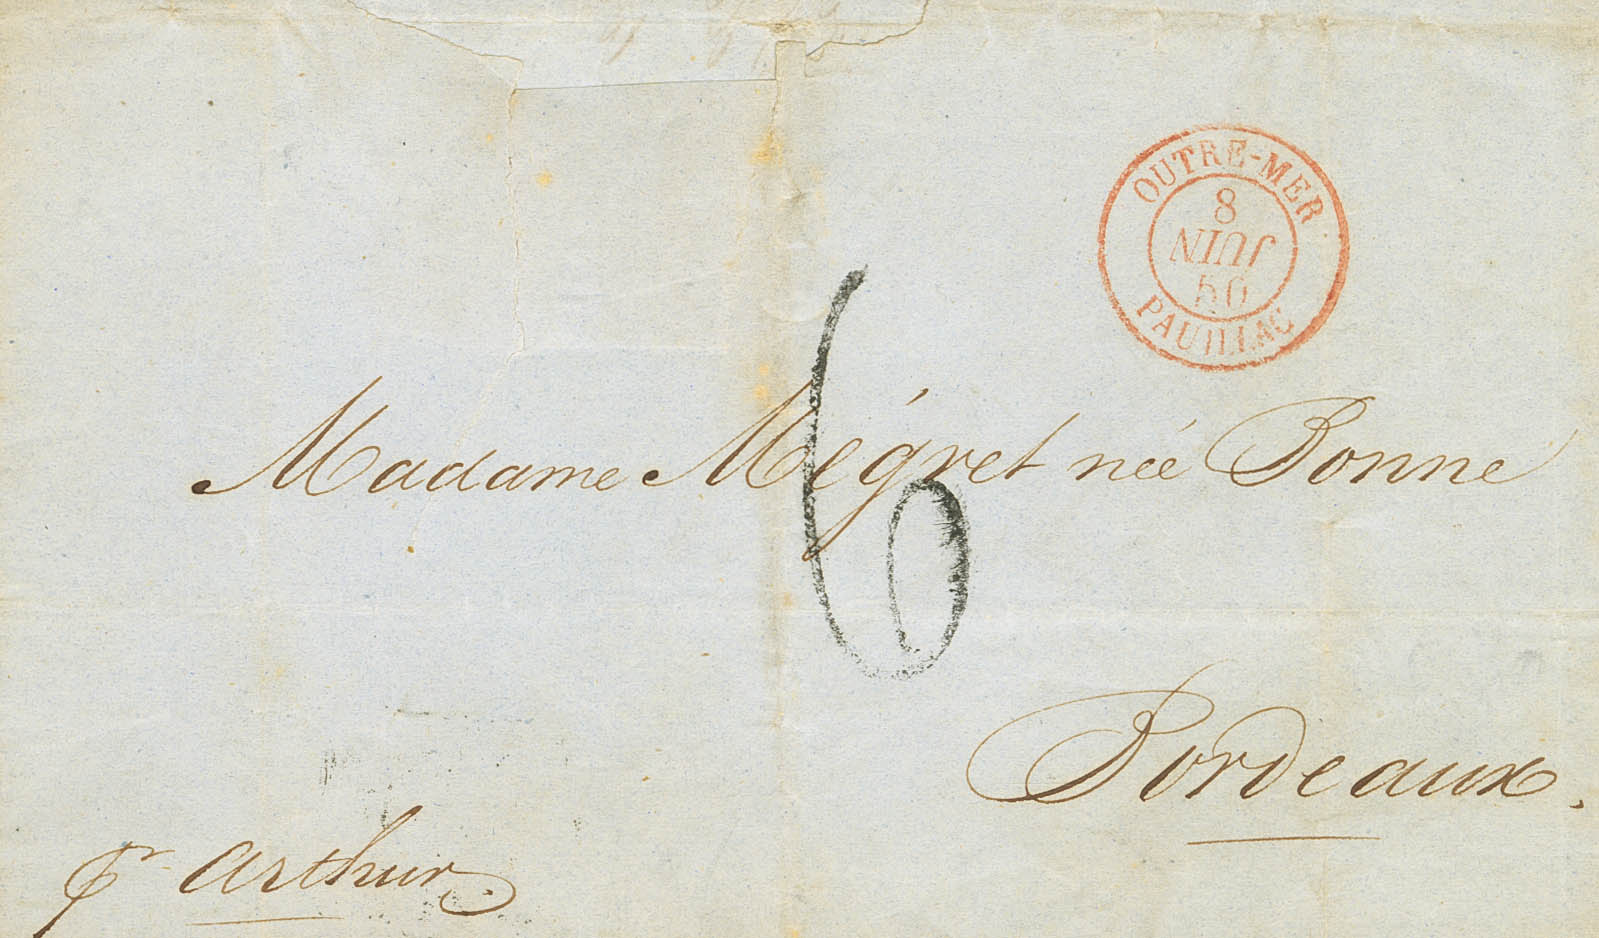 OUTRE-MER
8
JUIN
50
PAUILLAC
6
Madame Mégret née Bonne
Bordeaux.
pr Arthur.